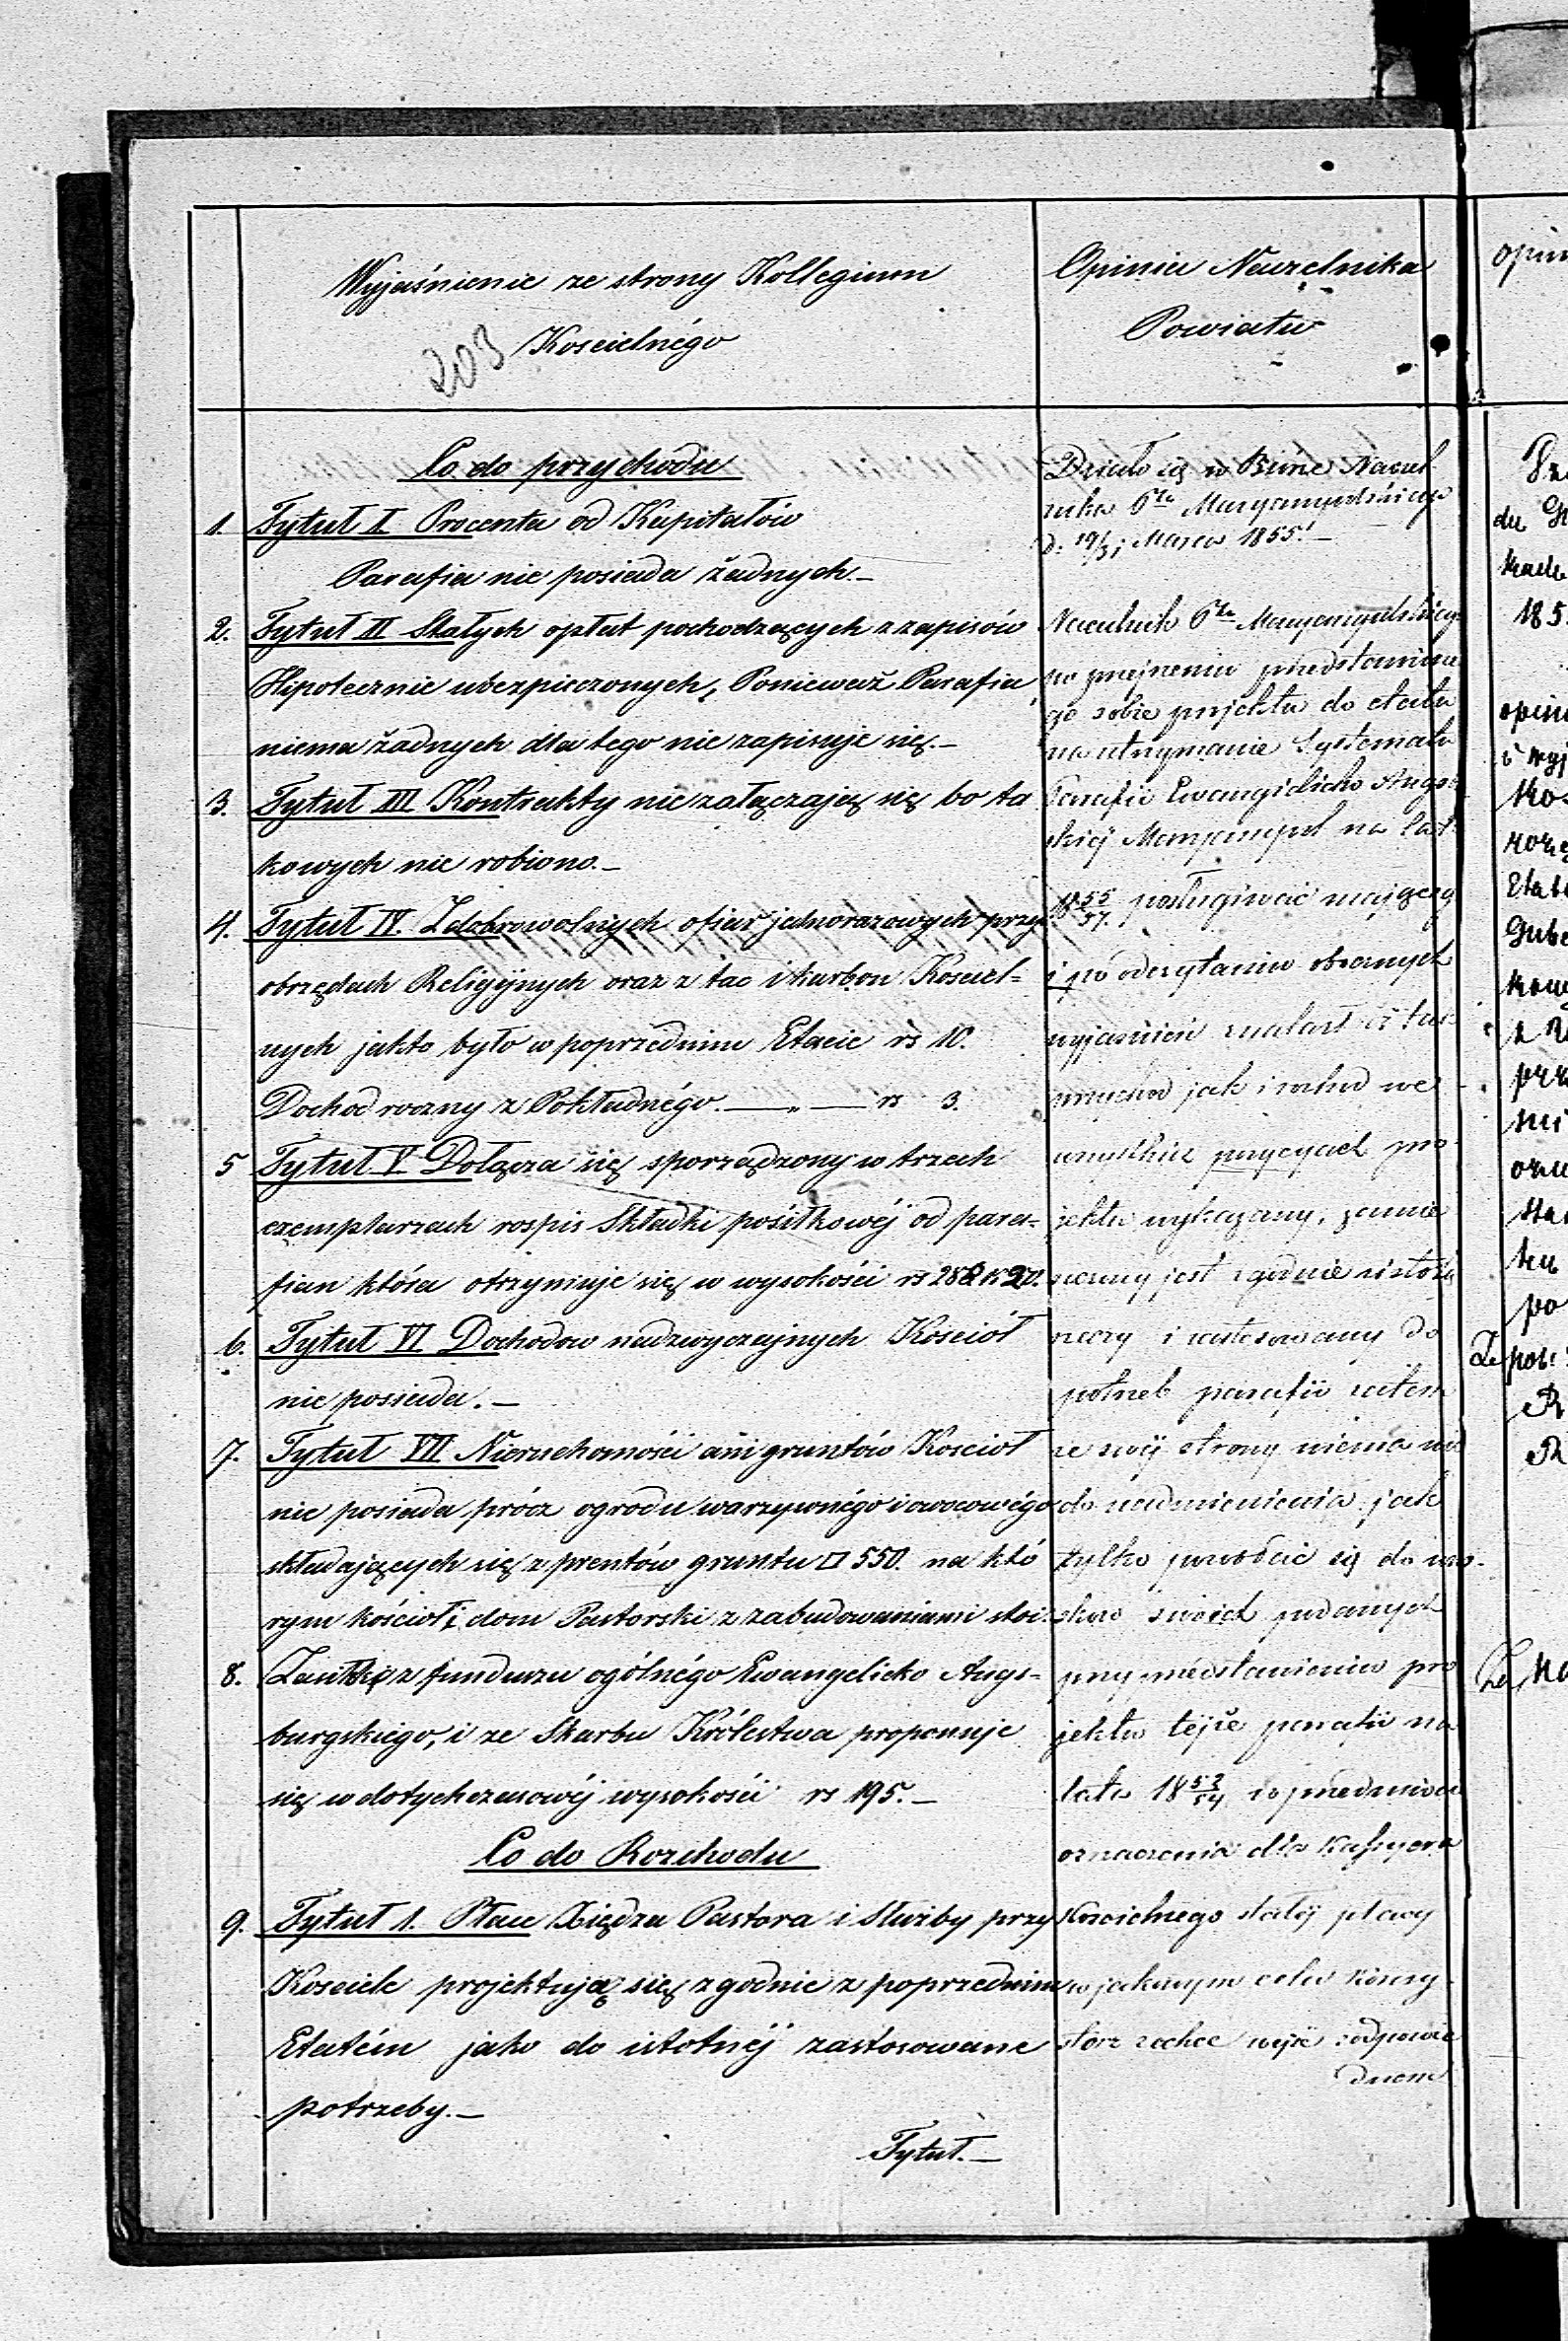 Wyjaśnienie ze strony Kollegium
Kościelnégo
203
Co do przychodu
1. Tytuł I Procenta od Kapitałów
Parafia nie posiada żadnych.—
2. Tytuł II Stałych opłat pochodzących z zapisów
Hipotecznie ubezpieczonych, Ponieważ Parafia
niema żadnych dla tego nie zapisuje się.—
3. Tytuł III Kontrakty nie załączają się bo ta
kowych nie robiono.—
4. Tytuł IV. Z dobrowolnych ofiar jednorazowych przy
obrzędach Religijnych oraz z tac i karbon Kościel-
nych jak to było w poprzednim Etacie rs 10.
Dochod roczny z Pokładnégo. —„— rs 3.
5 Tytuł V Dołącza się sporządzony w trzech
exemplarzach rospis Składki posiłkowéj od para-
fian która otrzymuje się w wysokości rs 282 k 20.
6. Tytuł VI Dochodow nadzwyczajnych Kościół
nie posiada.—
7. Tytuł VII Nieruchomości ani gruntów Kościoł
nie posiada prócz ogrodu warzywnégo i owocowégo
składających się z prentów gruntu □ 550. na któ
rym kościoł i dom Pastorski z zabudowaniami stoi.
8. Zasiłki z funduszu ogólnégo Ewangelicko Augs-
burgskiego, i ze Skarbu Królestwa proponuje
się w dotychczasowéj wysokości rs 195.—
Co do Rozchodu
9. Tytuł 1. Płace Xiędza Pastora i Służby przy
Kosciele projektują się zgodnie z poprzednim
Etatém jako do istotnéj zastosowane
potrzeby.—
Tytuł.—
Opinia Naczelnika
Powiatu
Działo się w Biórze Naczel
nika Ptu Maryampolskiego
d: 19/31 Marca 1855.—
Naczelnik Ptu Maryampolskiego
po przejrzeniu przedstawione
go sobie projektu do etatu
na utrzymanie Systematu
Parafii Ewangielicko Augsb
skiéj Maryampol na lat
18 55/57. posługiwać mającego
i po odczytaniu obecnych
wyjaśnień znalazł iż tak
przychod jak i rozchod we
wszystkich pozycyach pro-
jektu wykazany, zamie
rzony jest zgodnie z istotą
rzeczy i zastosowany do
potrzeb parafii zatem
ze swéj strony niema nic
do nadmienienia jak
tylko powołać się do wnio-
sków swoich podanych
przy przedstawieniu pro
jektu tejże parafii na
lata 18 52/54 w przedmiocie
oznaczenia dla Kassyera
Kościelnego stałéj płacy
w jakowym celu Konsy-
storz zechce wejść z odpowie
dniem
opin
du
18 5
opin
i wyj
Ko-
Etat
Gube
prze
po